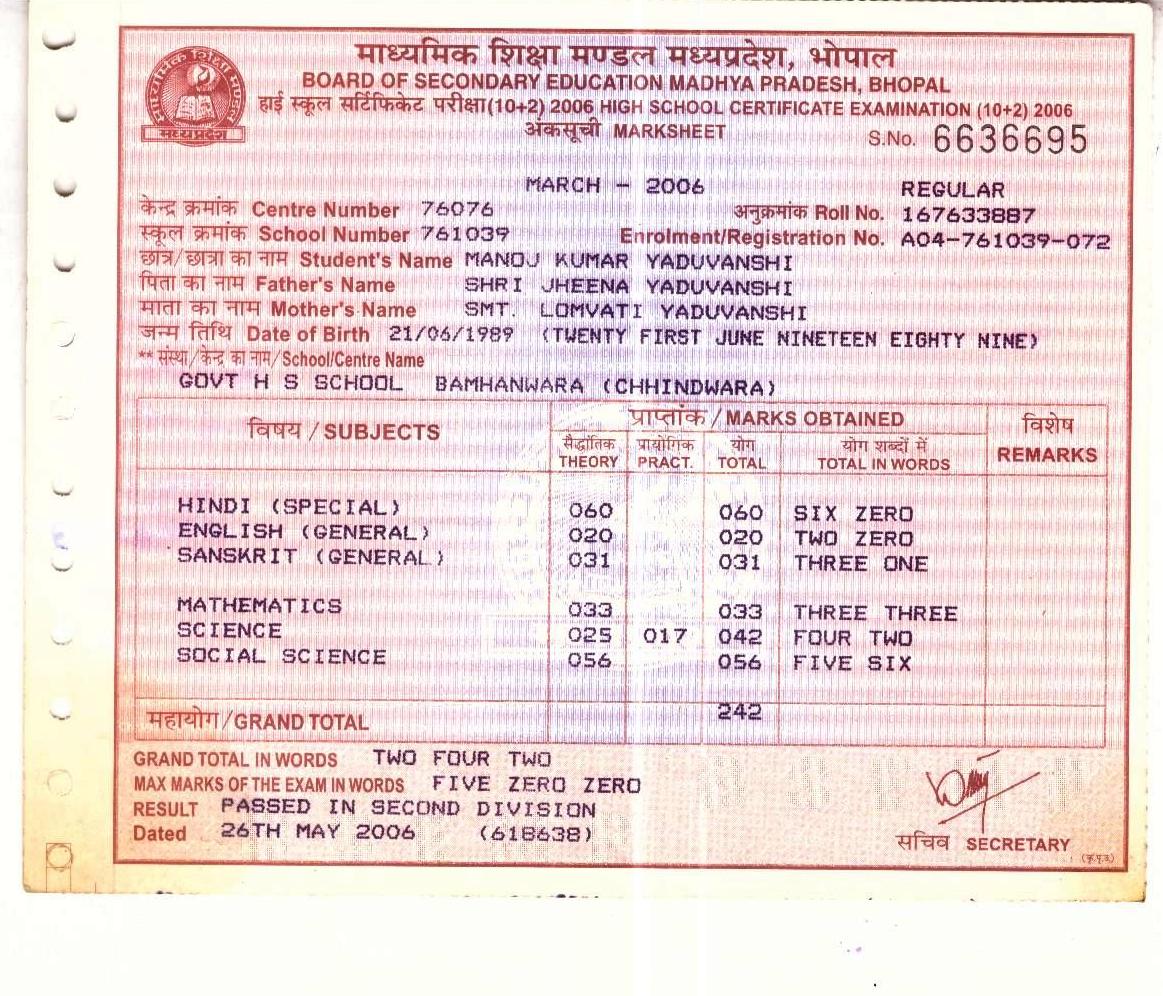 माध्यमिक शिक्षा मण्डल मध्यप्रदेश, भोपाल
BOARD OF SECONDARY EDUCATION MADHYA PRADESH, BHOPAL
हाई स्कूल सर्टिफिकेट परीक्षा(10+2) 2006 HIGH SCHOOL CERTIFICATE EXAMINATION (10+2) 2006
अंकसूची MARKSHEET
S.No. 6636695
माध्यमिक शिक्षा मण्डल
मध्यप्रदेश
MARCH - 2006 REGULAR
केन्द्र क्रमांक Centre Number 76076 अनुक्रमांक Roll No. 167633887
स्कूल क्रमांक School Number 761039 Enrolment/Registration No. A04-761039-072
छात्र/छात्रा का नाम Student's Name MANOJ KUMAR YADUVANSHI
पिता का नाम Father's Name SHRI JHEENA YADUVANSHI
माता का नाम Mother's Name SMT. LOMVATI YADUVANSHI
जन्म तिथि Date of Birth 21/06/1989 (TWENTY FIRST JUNE NINETEEN EIGHTY NINE)
** संस्था/केन्द्र का नाम/School/Centre Name
GOVT H S SCHOOL BAMHANWARA (CHHINDWARA)
विषय / SUBJECTS प्राप्तांक / MARKS OBTAINED विशेष REMARKS
सैद्धांतिक THEORY प्रायोगिक PRACT. योग TOTAL योग शब्दों में TOTAL IN WORDS
HINDI (SPECIAL) 060 060 SIX ZERO
ENGLISH (GENERAL) 020 020 TWO ZERO
SANSKRIT (GENERAL) 031 031 THREE ONE
MATHEMATICS 033 033 THREE THREE
SCIENCE 025 017 042 FOUR TWO
SOCIAL SCIENCE 056 056 FIVE SIX
महायोग/GRAND TOTAL 242
GRAND TOTAL IN WORDS TWO FOUR TWO
MAX MARKS OF THE EXAM IN WORDS FIVE ZERO ZERO
RESULT PASSED IN SECOND DIVISION
Dated 26TH MAY 2006 (618638)
सचिव SECRETARY
(कृ.पृ.उ)